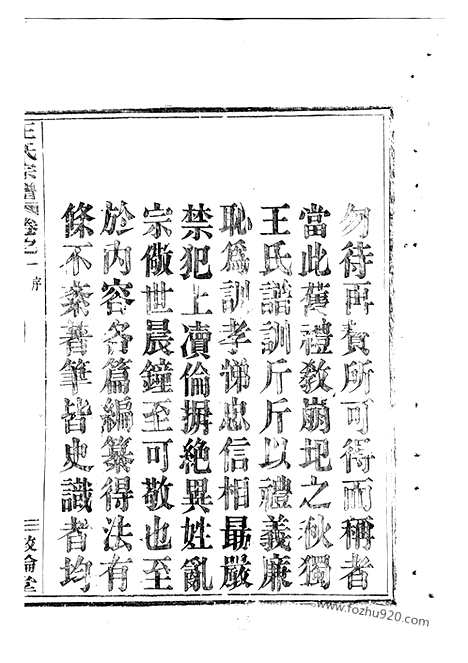 勿待再贅所可得而稱者
當此舊禮敎崩圮之秋獨
王氏譜訓斤斤以禮義廉
恥爲訓孝悌忠信相勗嚴
禁犯上凟倫摒絶異姓亂
宗儆世晨鐘至可敬也至
於內容各篇編纂得法有
條不紊著筆皆史識者均
王氏宗譜 卷之一 序 三 敦倫堂
www.fozhu920.com